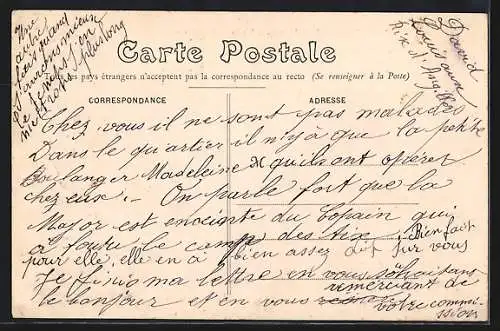 Une
autre
fois quand
j'aurai mieux
le temps j'en
mettrai plus long
David
Louis
Carte Postale
Tous les pays étrangers n'acceptent pas la correspondance au recto (Se renseigner à la Poste)
CORRESPONDANCE
ADRESSE
Chez vous il ne sont pas malades
Dans le quartier il n'y a que la petite
Boulanger Madeleine qu'ile ont opérer
chez eux. - On parle fort que la
Major est enceinte du Copain qui
à foutu le camp dès Aix, Bien fait
pour elle, elle en à bien assez dit sur vous
Je finis ma lettre en vous souhaitans
le bonjour et en vous remerciant de
votre commi-
ssion